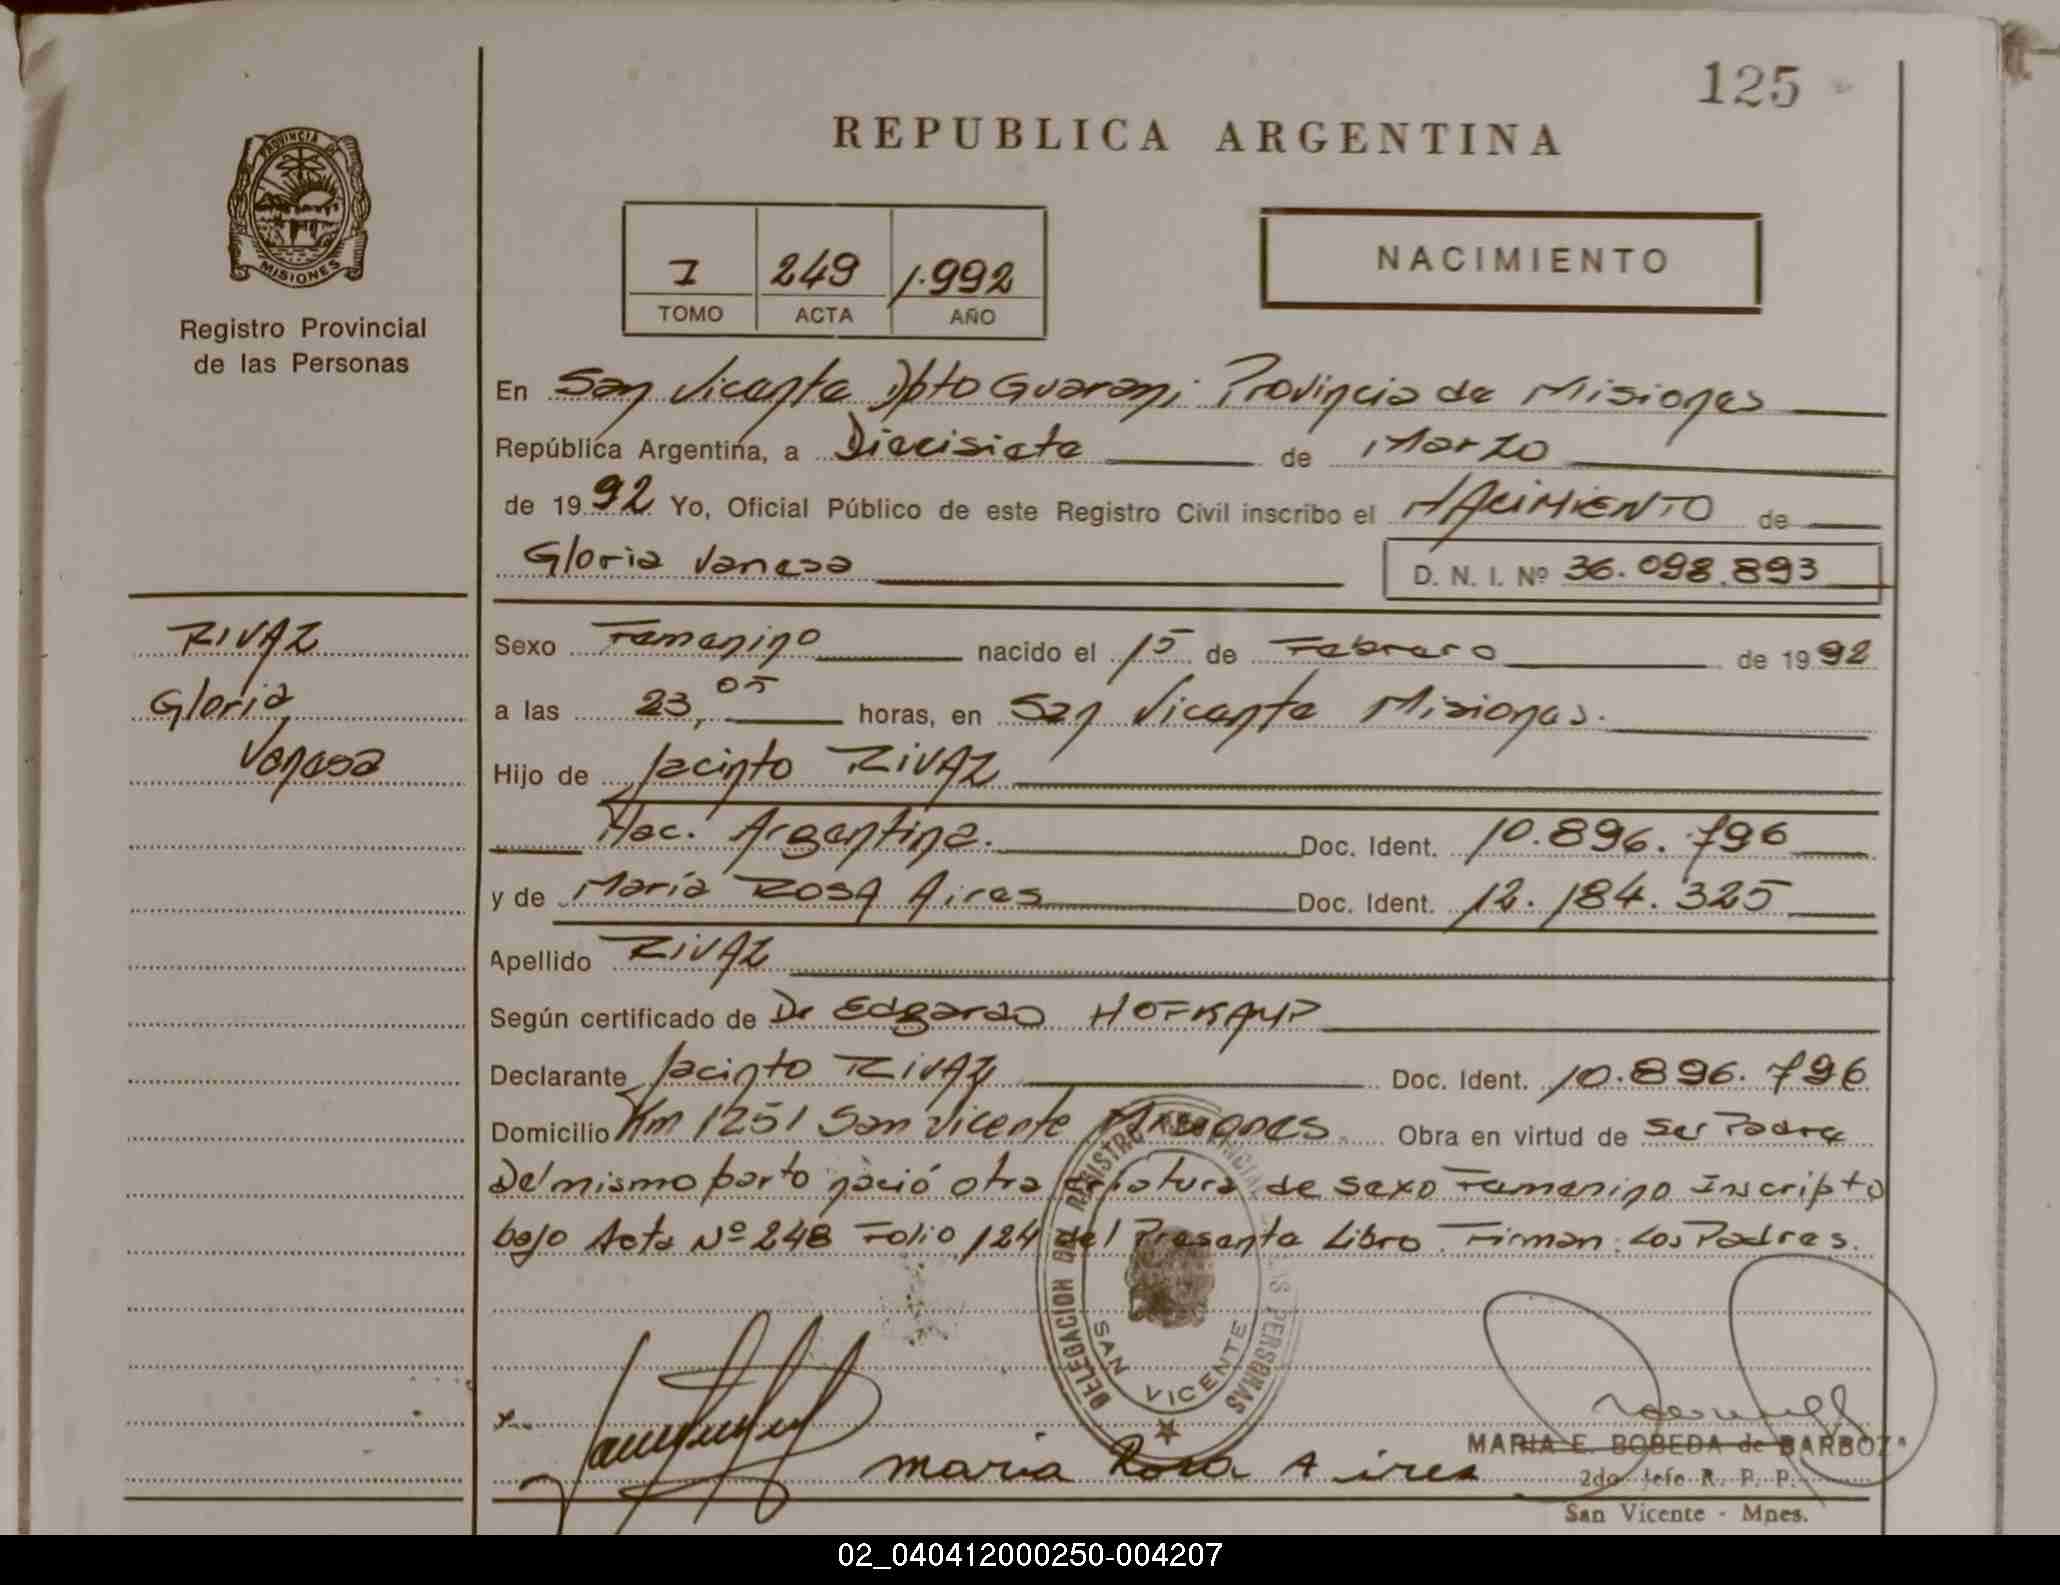 125
REPUBLICA ARGENTINA
PROVINCIA DE
MISIONES
Registro Provincial
de las Personas
I 249 1.992
TOMO ACTA AÑO
NACIMIENTO
En San Vicente Dpto Guarani Provincia de Misiones
República Argentina, a Diecisiete de Marzo
de 1992 Yo, Oficial Público de este Registro Civil inscribo el NACIMIENTO de
Gloria Vanesa D. N. I. Nº 36.098.893
RIVAZ
Gloria
Vanesa
Sexo Femenino nacido el 15 de Febrero de 1992
a las 23,05 horas, en San Vicente Misiones.
Hijo de Jacinto RIVAZ
Nac. Argentina. Doc. Ident. 10.896.796
y de María ROSA Aires Doc. Ident. 12.184.325
Apellido RIVAZ
Según certificado de Dr Edgardo HOFKAMP
Declarante Jacinto RIVAZ Doc. Ident. 10.896.796
Domicilio Km 1251 San Vicente Misiones. Obra en virtud de Ser Padre
Del mismo parto nació otra criatura de sexo Femenino Inscripto
bajo Acta Nº 248 Folio 124 del Presente Libro. Firman: Los Padres.
DELEGACION DEL REGISTRO PROVINCIAL DE LAS PERSONAS
SAN VICENTE
maria Rosa Aires
MARIA E. BOBEDA de BARBOZA
2do Jefe R. P. P.
San Vicente - Mnes.
02_040412000250-004207